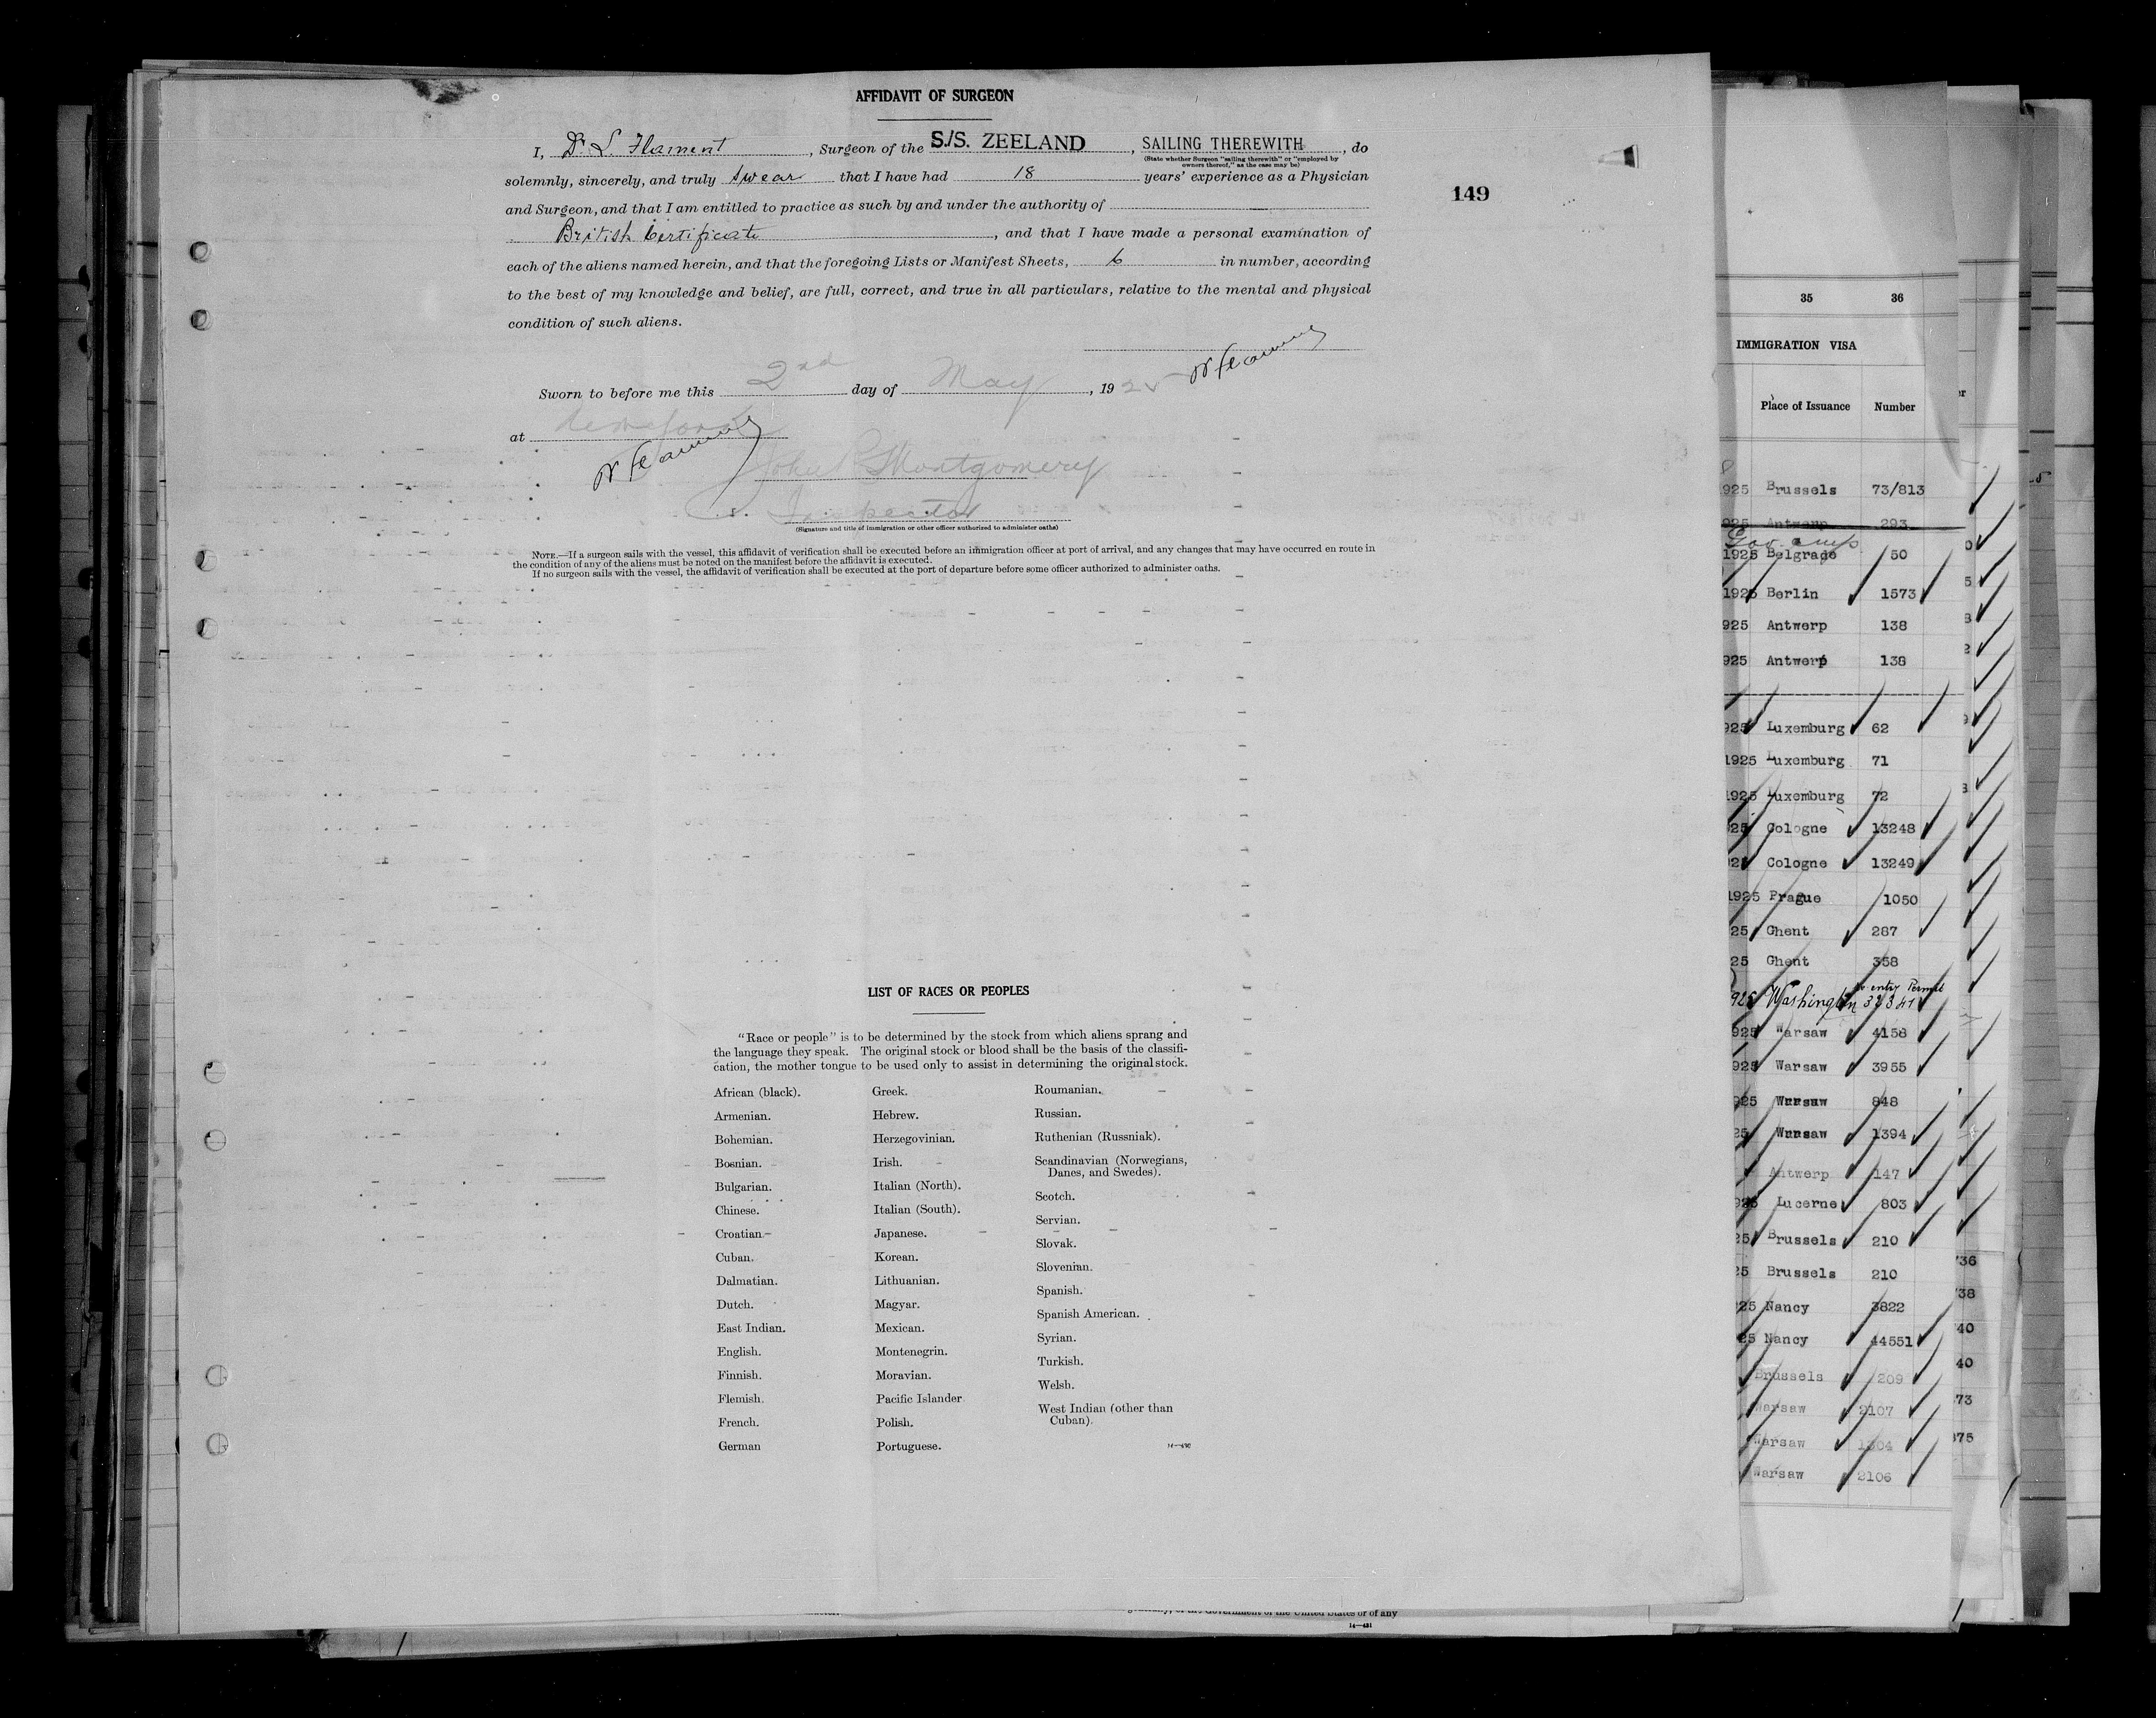 AFFIDAVIT OF SURGEON
I, Dr. L. Flament, Surgeon of the S./S. ZEELAND, SAILING THEREWITH, do
(State whether Surgeon "sailing therewith" or "employed by
owners thereof," as the case may be)
solemnly, sincerely, and truly swear that I have had 18 years' experience as a Physician
149
and Surgeon, and that I am entitled to practice as such by and under the authority of
British Certificate, and that I have made a personal examination of
each of the aliens named herein, and that the foregoing Lists or Manifest Sheets, 6 in number, according
to the best of my knowledge and belief, are full, correct, and true in all particulars, relative to the mental and physical
condition of such aliens.
Sworn to before me this 2nd day of May, 1925
at
John Montgomery
Inspector
(Signature and title of immigration or other officer authorized to administer oaths)
NOTE.—If a surgeon sails with the vessel, this affidavit of verification shall be executed before an immigration officer at port of arrival, and any changes that may have occurred en route in
the condition of any of the aliens must be noted on the manifest before the affidavit is executed.
If no surgeon sails with the vessel, the affidavit of verification shall be executed at the port of departure before some officer authorized to administer oaths.
LIST OF RACES OR PEOPLES
"Race or people" is to be determined by the stock from which aliens sprang and
the language they speak. The original stock or blood shall be the basis of the classifi-
cation, the mother tongue to be used only to assist in determining the original stock.
African (black).
Armenian.
Bohemian.
Bosnian.
Bulgarian.
Chinese.
Croatian.
Cuban.
Dalmatian.
Dutch.
East Indian.
English.
Finnish.
Flemish.
French.
German
Greek.
Hebrew.
Herzegovinian.
Irish.
Italian (North).
Italian (South).
Japanese.
Korean.
Lithuanian.
Magyar.
Mexican.
Montenegrin.
Moravian.
Pacific Islander
Polish.
Portuguese.
Roumanian.
Russian.
Ruthenian (Russniak).
Scandinavian (Norwegians,
Danes, and Swedes).
Scotch.
Servian.
Slovak.
Slovenian.
Spanish.
Spanish American.
Syrian.
Turkish.
Welsh.
West Indian (other than
Cuban).
35 36
IMMIGRATION VISA
Place of Issuance Number
925 Brussels 73/813
925 Antwerp 293
1925 Belgrade 50
1925 Berlin 1573
925 Antwerp 138
925 Antwerp 138
925 Luxemburg 62
1925 Luxemburg 71
1925 Luxemburg 72
25 Cologne 13248
25 Cologne 13249
1925 Prague 1050
25 Ghent 287
25 Ghent 358
925 Washington entry Permit
925 Warsaw 4158
925 Warsaw 3955
925 Warsaw 848
25 Warsaw 1394
Antwerp 147
925 Lucerne 803
25 Brussels 210
25 Brussels 210
25 Nancy 3822
25 Nancy 44551
Brussels 209
Warsaw 2107
Warsaw 1304
Warsaw 2106
736
738
40
40
73
375
the Government of the United States or of any
14—431